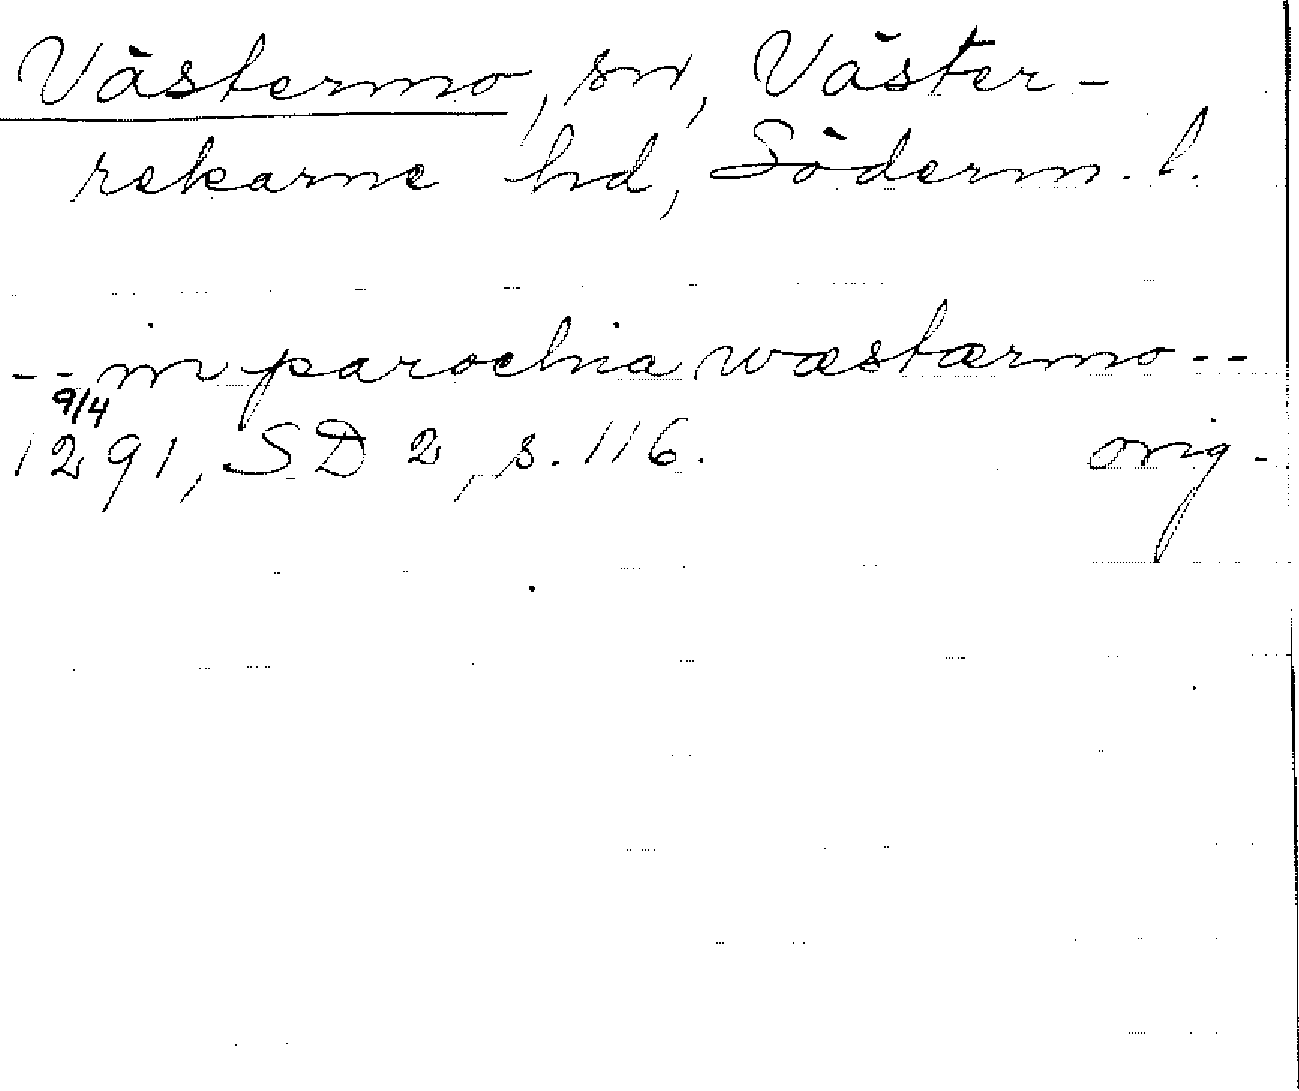 Västermo, sn, Väster-
rekarne hd, Söderm. l.
-- in parochia wæstærmo --
9/4
1291, SD 2, s. 116. orig.